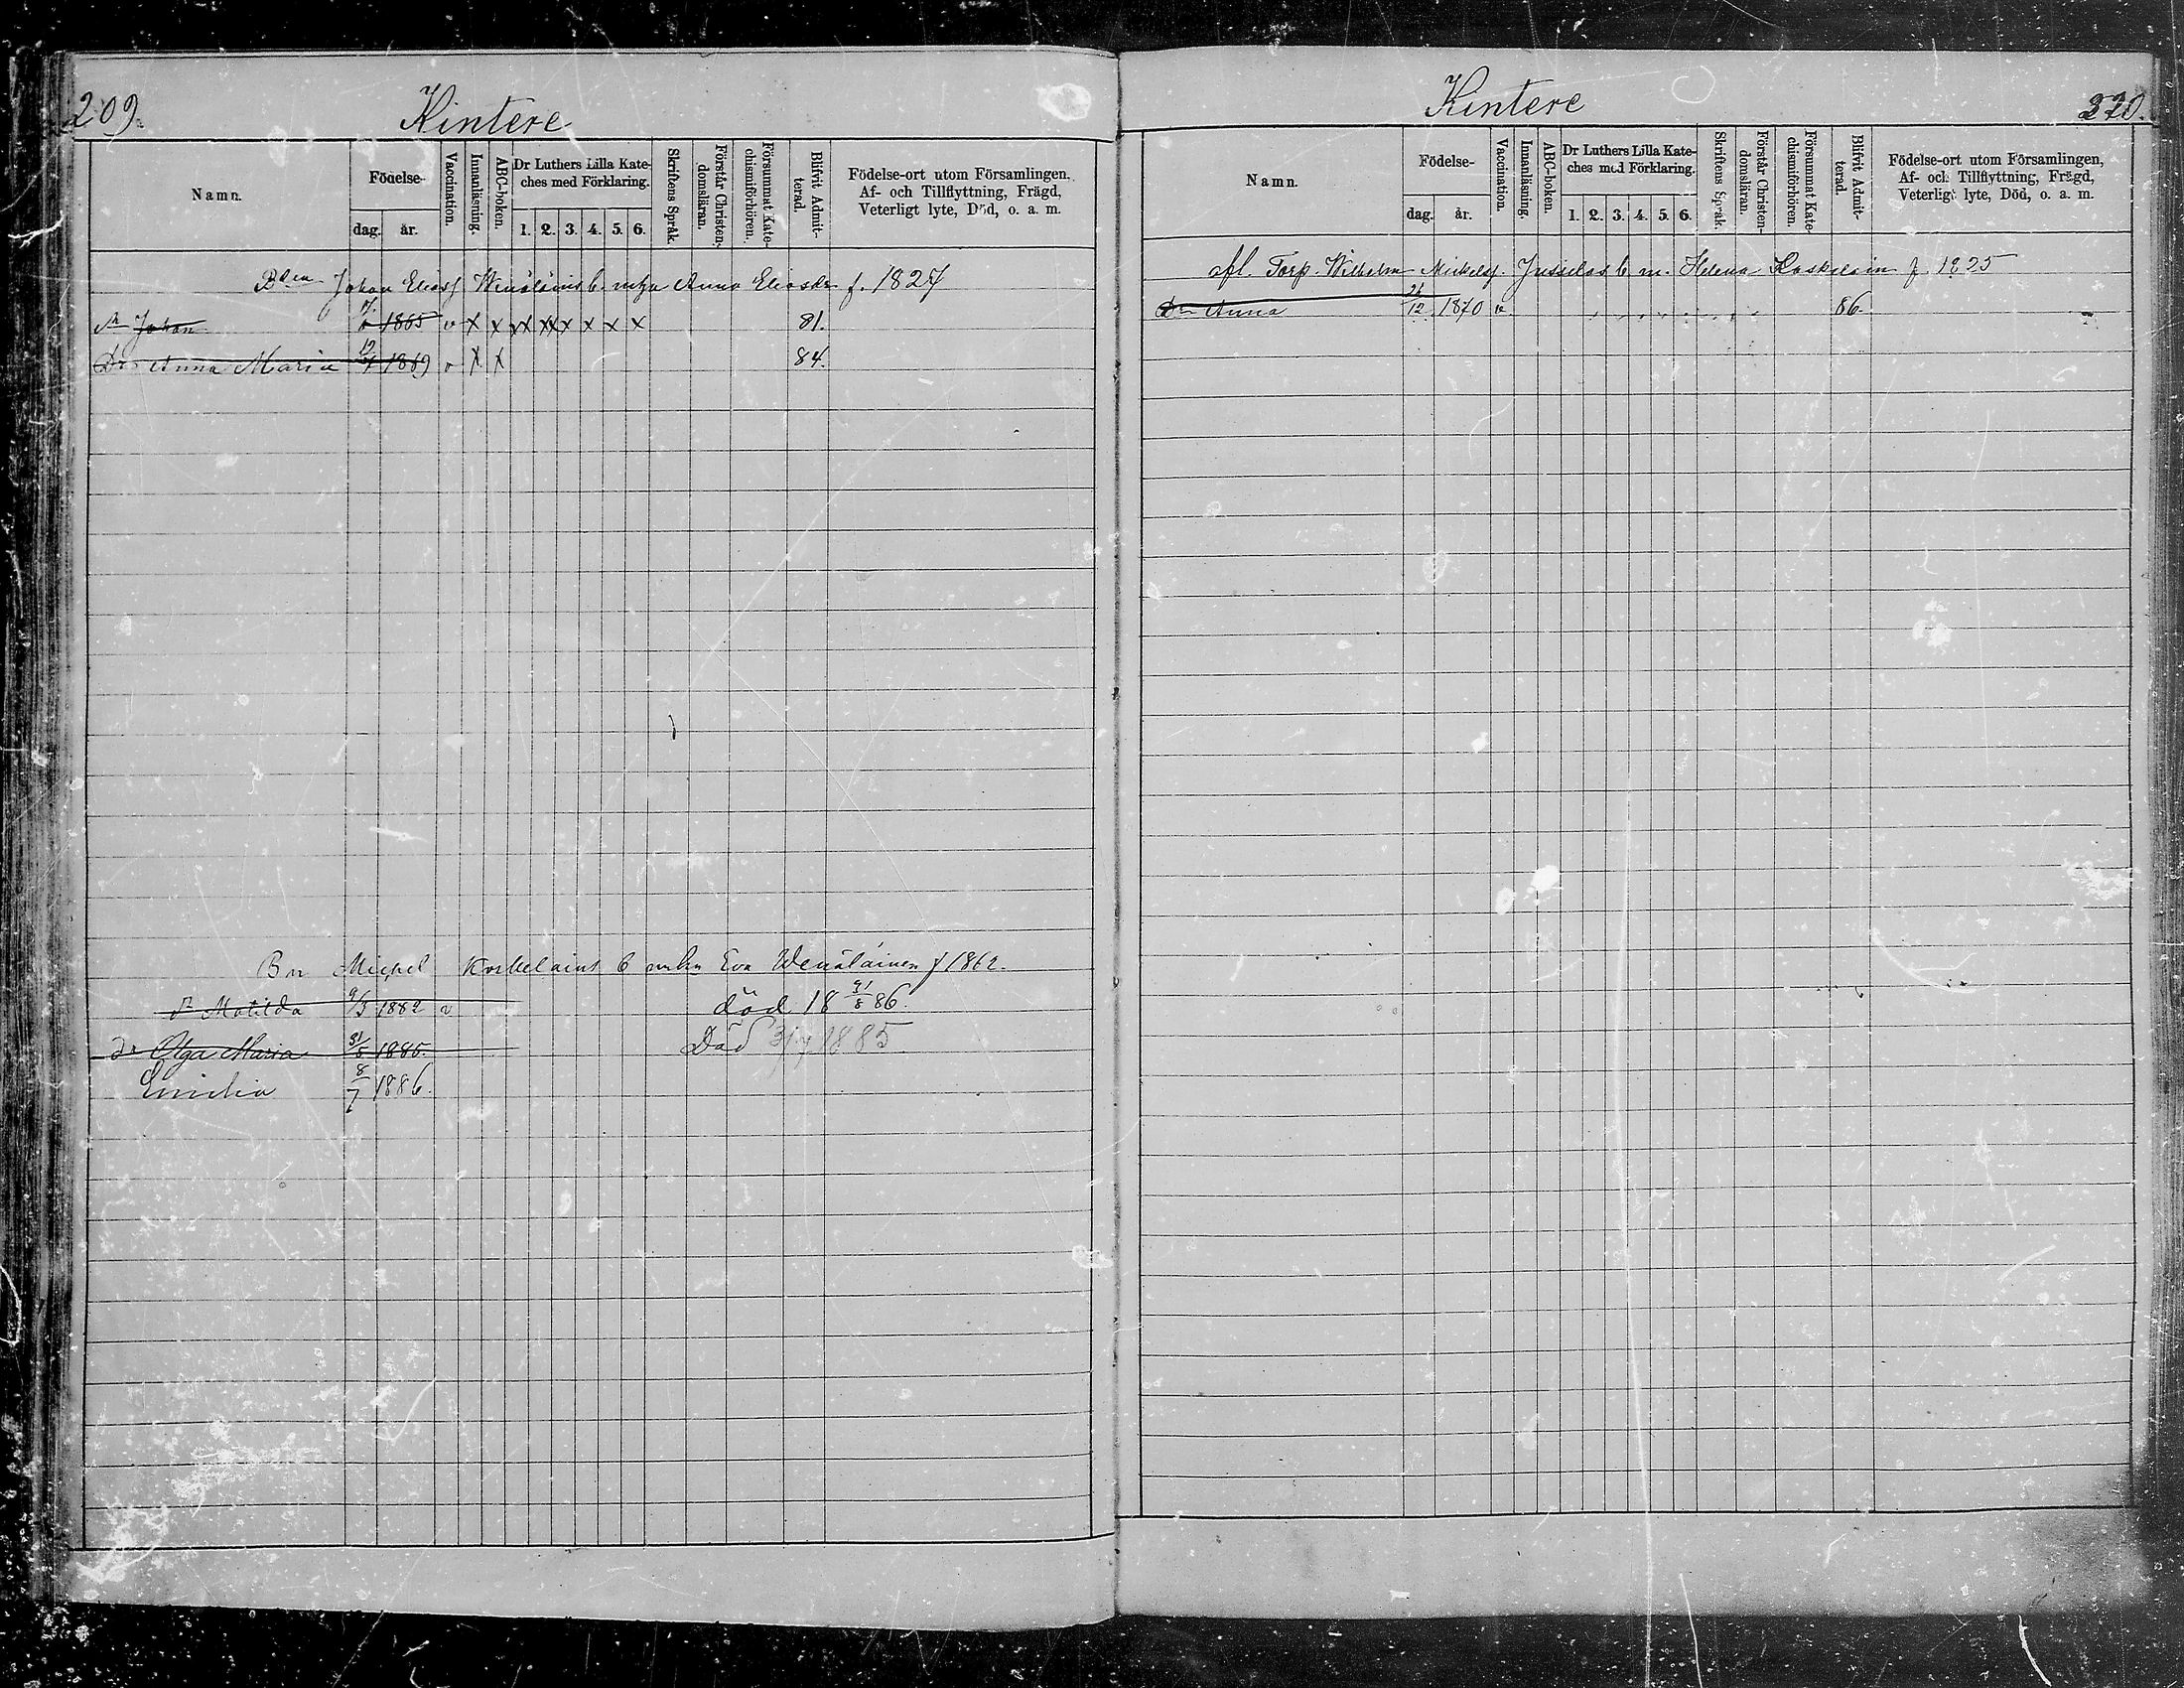 209.
Kintere
Namn.
Födelse-
dag.
år.
Vaccination.
Innanläsning.
ABC-boken.
Dr Luthers Lilla Kate-
ches med Förklaring.
1. 2. 3. 4. 5. 6.
Skriftens Språk.
Förstår Christen-
domsläran.
Försummat Kate-
chismiförhören.
Blifvit Admit-
terad.
Födelse-ort utom Församlingen,
Af- och Tillflyttning, Frägd,
Veterligt lyte, Död, o. a. m.
Johan Eliasf Anna Eliasdr f. 1827
Johan 1865 v x x x x x x x x 81.
Dr Anna Maria 1869 v x x 84.
Bn Michel Koskelains b Eva Wenäläinen f 1862.
Matilda 9/3 1882 v död 18 31/8 86.
dr Olga Maria 31/5 1885. Död 31/7 1885
Emilia 8/7 1886.
Kintere
Namn.
Födelse-
dag.
år.
Vaccination.
Innanläsning.
ABC-boken.
Dr Luthers Lilla Kate-
ches med Förklaring.
1. 2. 3. 4. 5. 6.
Skriftens Språk.
Förstår Christen-
domsläran.
Försummat Kate-
chismiförhören.
Blifvit Admit-
terad.
Födelse-ort utom Församlingen,
Af- och Tillflyttning, Frägd,
Veterligt lyte, Död, o. a. m.
afl. Torp. Wilhelm Mickelsf. Jussilas b m. Helena Koskelain f. 1825
Dr Anna 26/12 1870 v 86.